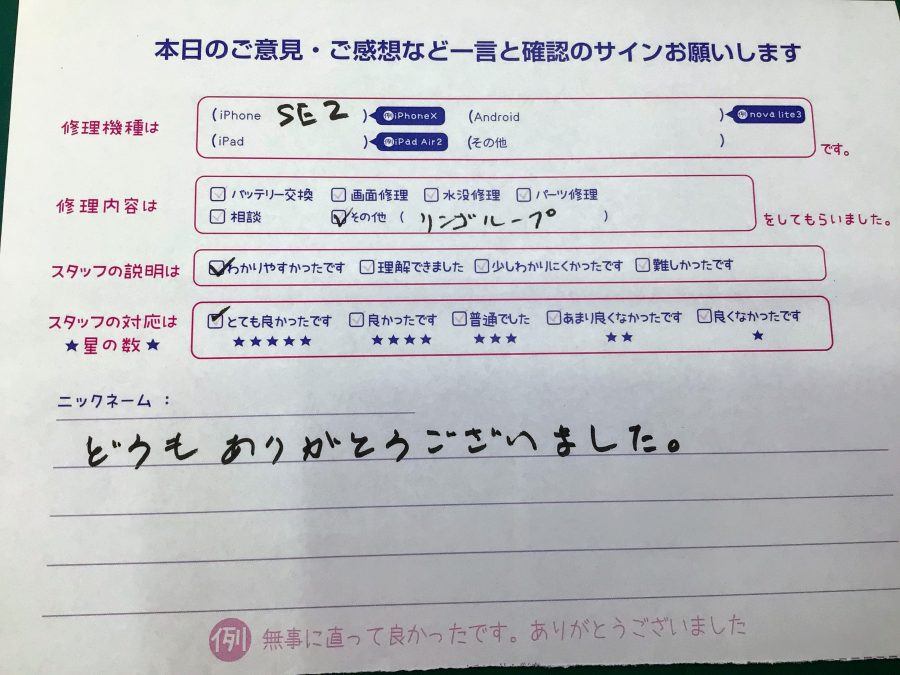 本日のご意見・ご感想など一言と確認のサインお願いします
修理機種は
(iPhone SE2 ) 例iPhoneX (Android ) 例nova lite3
(iPad ) 例iPad Air2 (その他 ) です。
修理内容は
バッテリー交換 画面修理 水没修理 パーツ修理
相談 その他 ( リンゴループ ) をしてもらいました。
スタッフの説明は わかりやすかったです 理解できました 少しわかりにくかったです 難しかったです
スタッフの対応は とても良かったです 良かったです 普通でした あまり良くなかったです 良くなかったです
★星の数★ ★★★★★ ★★★★ ★★★ ★★ ★
ニックネーム :
どうもありがとうございました。
例 無事に直って良かったです。ありがとうございました